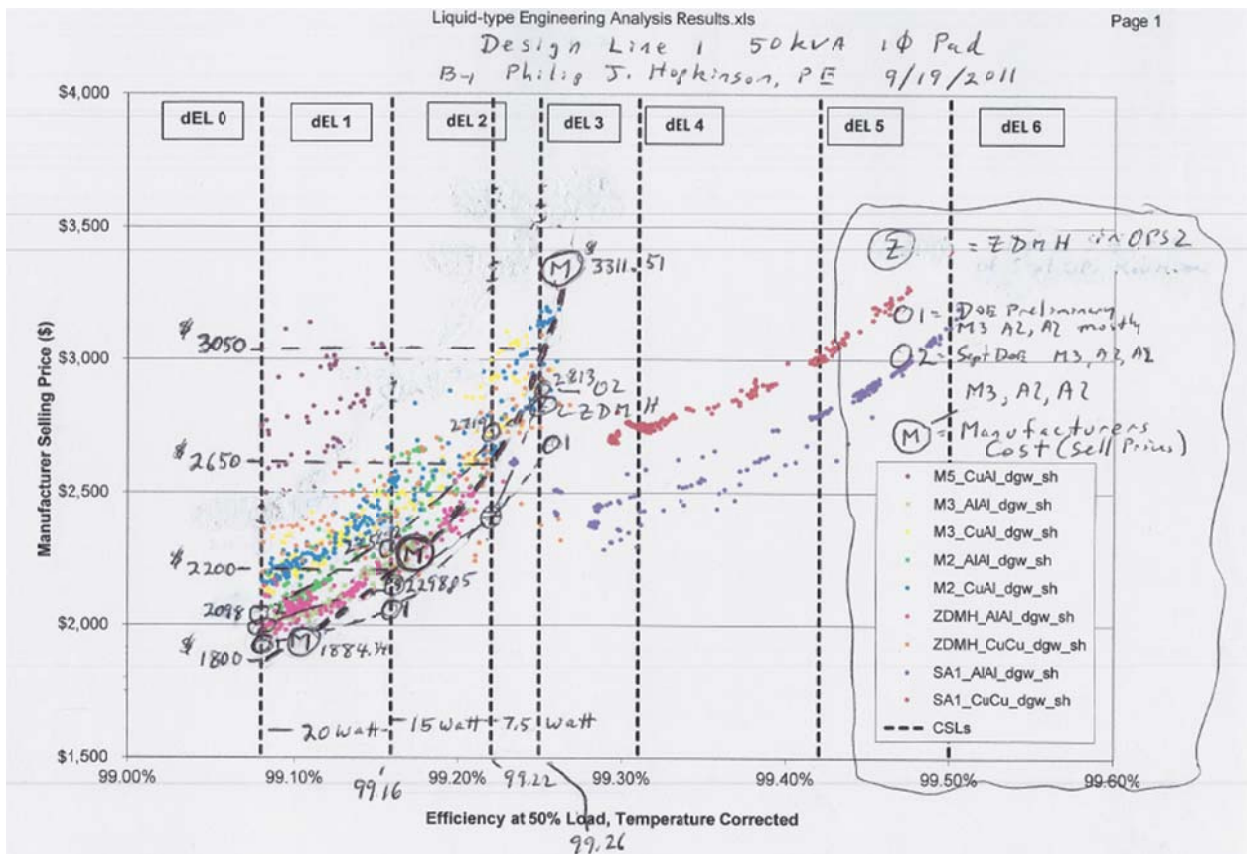 Liquid-type Engineering Analysis Results.xls
Page 1
Design Line 1 50 kVA 1Φ Pad
By Philip J. Hopkinson, PE 9/19/2011
$4,000
$3,500
$3,000
$2,500
$2,000
$1,500
Manufacturer Selling Price ($)
dEL 0
dEL 1
dEL 2
dEL 3
dEL 4
dEL 5
dEL 6
M $3311.51
$3050
2813 O2
ZDMH
O1
$2650
$2200
M
$2298.05
2098
$1800
M 1884.14
20 Watt
15 Watt
7.5 Watt
Z = ZDMH in OPS2
O1 = DOE Preliminary
M3 A2, A2 mostly
O2 = Sept DOE M3, A2, A2
M3, A2, A2
M = Manufacturers
Cost (Sell Prices)
M5_CuAl_dgw_sh
M3_AlAl_dgw_sh
M3_CuAl_dgw_sh
M2_AlAl_dgw_sh
M2_CuAl_dgw_sh
ZDMH_AlAl_dgw_sh
ZDMH_CuCu_dgw_sh
SA1_AlAl_dgw_sh
SA1_CuCu_dgw_sh
CSLs
99.00%
99.10%
99.20%
99.30%
99.40%
99.50%
99.60%
9916
99.22
99.26
Efficiency at 50% Load, Temperature Corrected